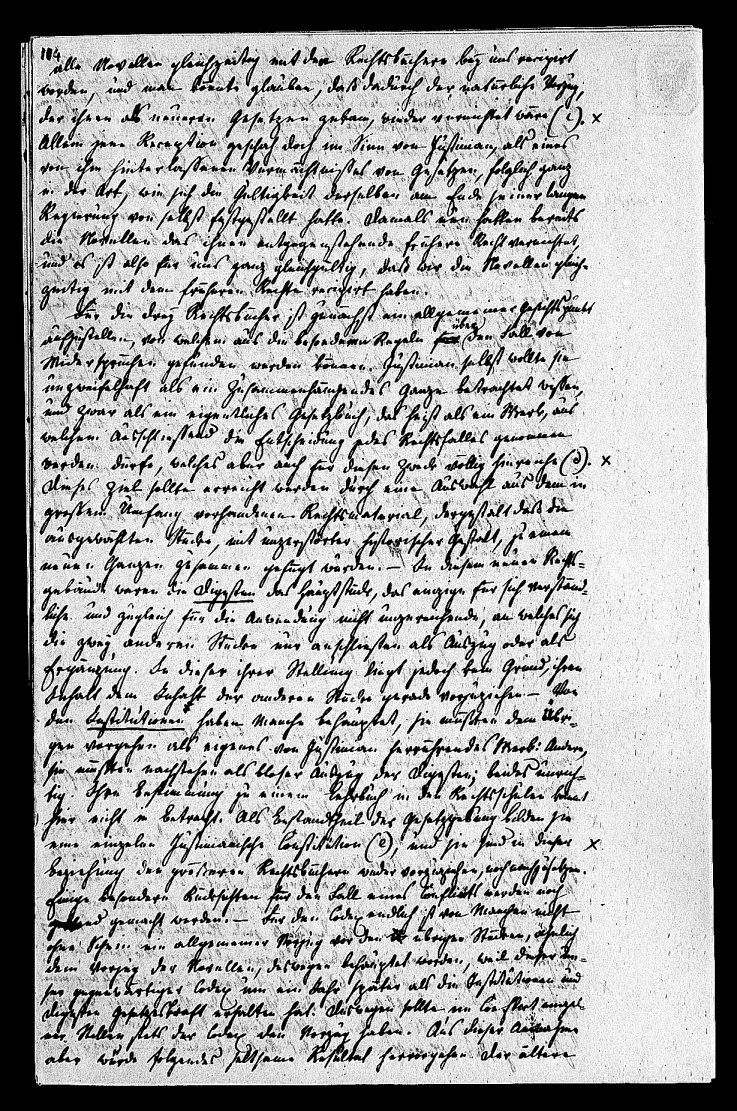 104
alle Novellen gleichzeitig mit den Rechtsbüchern bey uns recipirt
worden, und man könnte glauben, daß dadurch der natürliche Vorzug,
der ihnen als neueren Gesetzen gebam, wieder vernichtet wäre (c). ×
Allein jene Reception geschah doch im Sinn von Justinian, als eines
von ihm hinterlassenen Vermächtnisses von Gesetzen, folglich ganz
in der Art, wie sich die Gültigkeit derselben am Ende seiner langen
Regierung von selbst festgestellt hatte. Damals nun hatten bereits
die Novellen das ihnen entgegenstehende frühere Recht vernichtet,
und es ist also für uns ganz gleichgültig, daß wir die Novellen gleich-
zeitig mit dem früheren Rechte recipirt haben.
Für die drey Rechtsbücher ist zunächst ein allgemeiner Gesichtspunkt
aufzustellen, von welchem aus die besonderen Regeln über den Fall von
Widersprüchen gefunden werden können. Justinian selbst wollte sie
unzweifelhaft als ein zusammenhängendes Ganze betrachtet wissen,
und zwar als ein eigentliches Gesetzbuch, das heißt als ein Werk, aus
welchem ausschließend die Entscheidung jedes Rechtsfalles genommen
werden dürfe, welches aber auch für diesen Zweck völlig hinreiche (d). ×
Dieses Ziel sollte erreicht werden durch eine Auswahl aus dem in
großem Umfang vorhandenen Rechtsmaterial, dergestalt daß die
ausgewählten Stücke, mit unzerstörter historischer Gestalt, zu einem
neuen Ganzen zusammen gefügt würden. — In diesem neuen Rechts-
gebäude waren die Digesten das Hauptstück, das einzige für sich verständ-
liche und zugleich für die Anwendung nicht unzureichende, an welches sich
die zwey anderen Stücke nur anschließen als Auszug oder als
Ergänzung. In dieser ihrer Stellung liegt jedoch kein Grund, ihren
Inhalt dem Inhalt der anderen Stücke gerade vorzuziehen. — Von
den Institutionen haben Manche behauptet, sie müßten dem Übri-
gen vorgehen als eigenes von Justinian herrührendes Werk: Andere,
sie müßten nachstehen als bloßer Auszug der Digesten; beides unrich-
tig. Ihre Bestimmung zu einem Lehrbuch in den Rechtsschulen kommt
hier nicht in Betracht. Als Bestandtheil der Gesetzgebung bilden sie
eine einzelne Justinianische Constitution (e), und sie sind in dieser ×
Beziehung den größeren Rechtsbüchern weder vorzuziehen, noch nachzusetzen.
Einige besondere Rücksichten für den Fall eines Conflicts werden noch
gemacht werden. — Für den Codex endlich ist von Manchen nicht
ohne Schein ein allgemeiner Vorzug vor den übrigen Stücken, ähnlich
dem Vorzug der Novellen, deswegen behauptet worden, weil dieser un-
ser gegenwärtiger Codex um ein Jahr später als die Institutionen und
Digesten Gesetzeskraft erhalten hat. Deswegen sollte im Conflict einzel-
ner Stellen stets der Codex den Vorzug haben. Aus dieser Annahme
aber würde folgendes seltsame Resultat hervorgehen. Der ältere